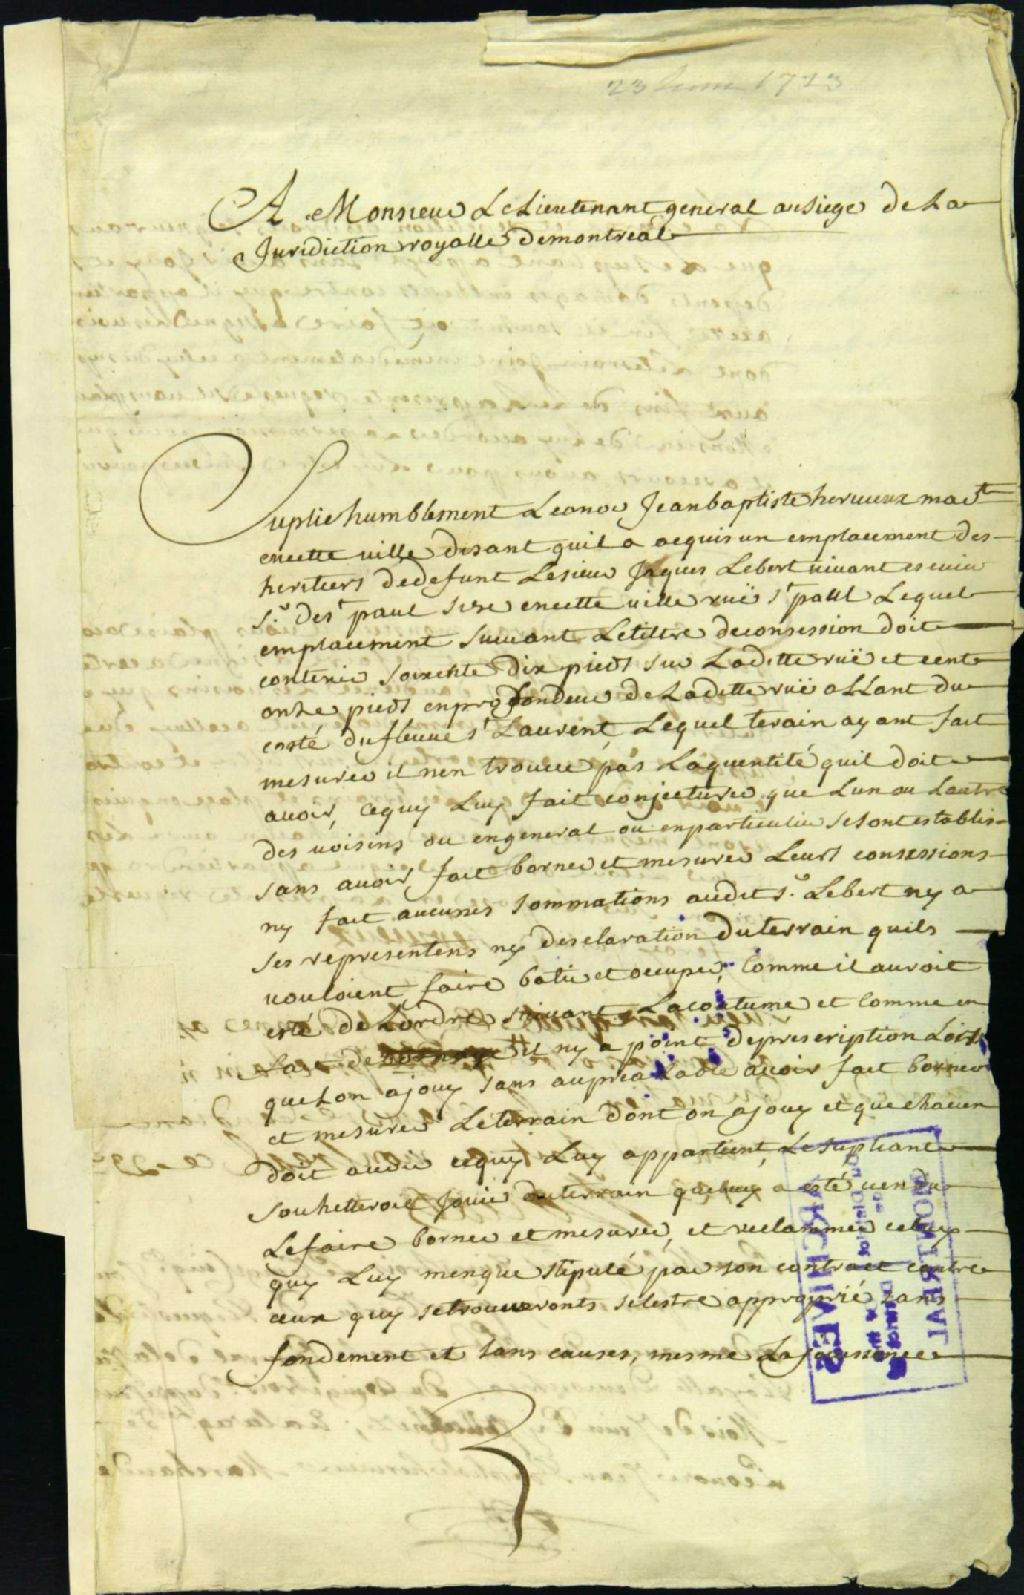 23 Juin 1723
A Monsieur Le Lieutenant general au siege de La
Juridiction royalle de montreal
Suplie humblement Leonor Jean baptiste hervieux marct
en cette ville disant quil a acquis un emplacement des
heritiers de defunt Le sieur Jaques Lebert vivant
sr. De st paul size en cette ville ruë st paul Lequel
emplacement suivant Le tittre de consession doit
contenir soixente dix pieds sur La ditte ruë et cent
onze pieds en profondeur de La ditte ruë allant du
costé du fleuve st Laurent, Lequel terain ayant fait
mesurer il nen trouve pas La quentité quil doit
avoir, ce quy Luy fait conjecturer que Lun ou Lautre
des voisins ou en general ou en particulier se sont establis
sans avoir fait borner et mesurer Leurs consessions
ny fait aucunes sommations audit sr. Lebert ny a
ses representens ny desclaration du terrain quils
vouloient faire batir et occuper, Comme il auroit
esté de Lordre suivant La coutume et Comme en
de il ny a point de prescription Lors
que Lon a jouy sans au prealable avoir fait borner
et mesurer Le terrain dont on a jouy et que chacun
doit avoir ce quy Luy appartient, Le supliant
souhetteroit jouir du terrain quy luy a esté vendu
Le faire borner et mesurer, et reclammer celuy
quy Luy menque stipulé par son contract contre
ceux quy se trouveronts se lestre approprié sans
fondement et sans causes, mesme La jouissance
ARCHIVES
MONTREAL